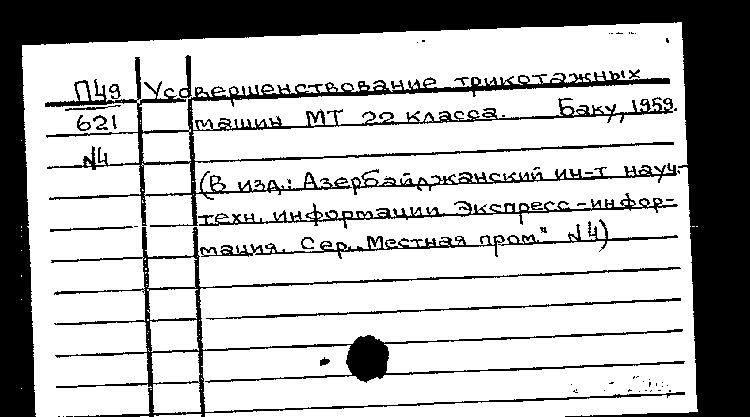 П49 Усовершенствование трикотажных
621 машин МТ 22 класса. Баку, 1959.
№4
(В изд.: Азербайджанский ин-т науч.-
техн. информации. Экспресс-инфор-
мация. Сер. „Местная пром." №4)